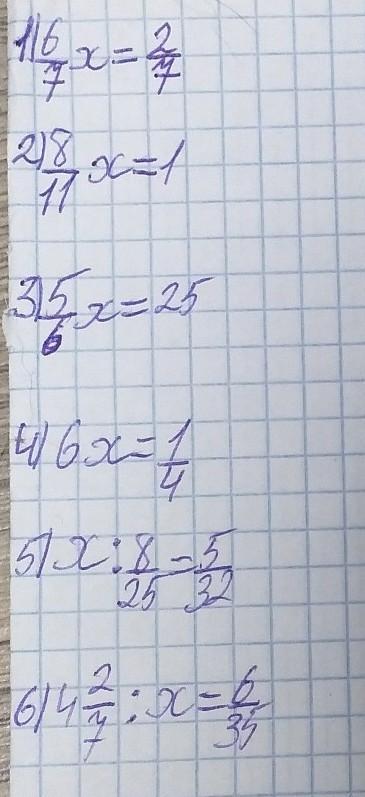 1) 6/7 x = 2/7
2) 8/11 x = 1
3) 5/6 x = 25
4) 6x = 1/4
5) x : 8/25 = 5/32
6) 4 2/7 : x = 6/35